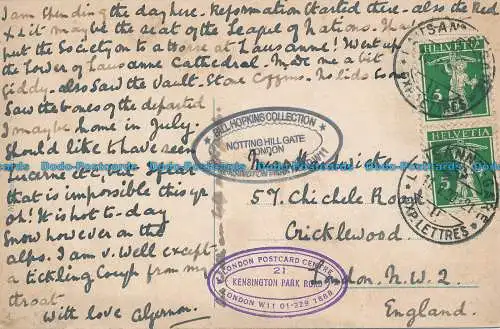 I am spending the day here. Reformation started there. also the Red
X & it may be the seat of the League of Nations.
put the Society on to a horse at Lausanne! Went up
the tower of Lausanne Cathedral. Made me a bit
giddy. also Saw the Vault. Stone Coffins. No lids
Saw the bones of the departed
I may be home in July.
Should like to have seen
etc. but I fear
that is impossible this yr
oh! It is hot to-day
Snow however on the
alps. I am v. Well except
a tickling Cough from my
throat.
With love Algernon.
57, Chichele Road
Cricklewood
London. N.W. 2.
England.
HELVETIA
5
HELVETIA
5
LETTRES
EXP. LETTRES
BILL HOPKINS COLLECTION
NOTTING HILL GATE
LONDON
KENSINGTON PARK
LONDON POSTCARD CENTRE
21
KENSINGTON PARK ROAD
LONDON W11 01-229 1888
Dodo-Postcards Dodo-Postcards Dodo-Postcards Dodo-Postcards